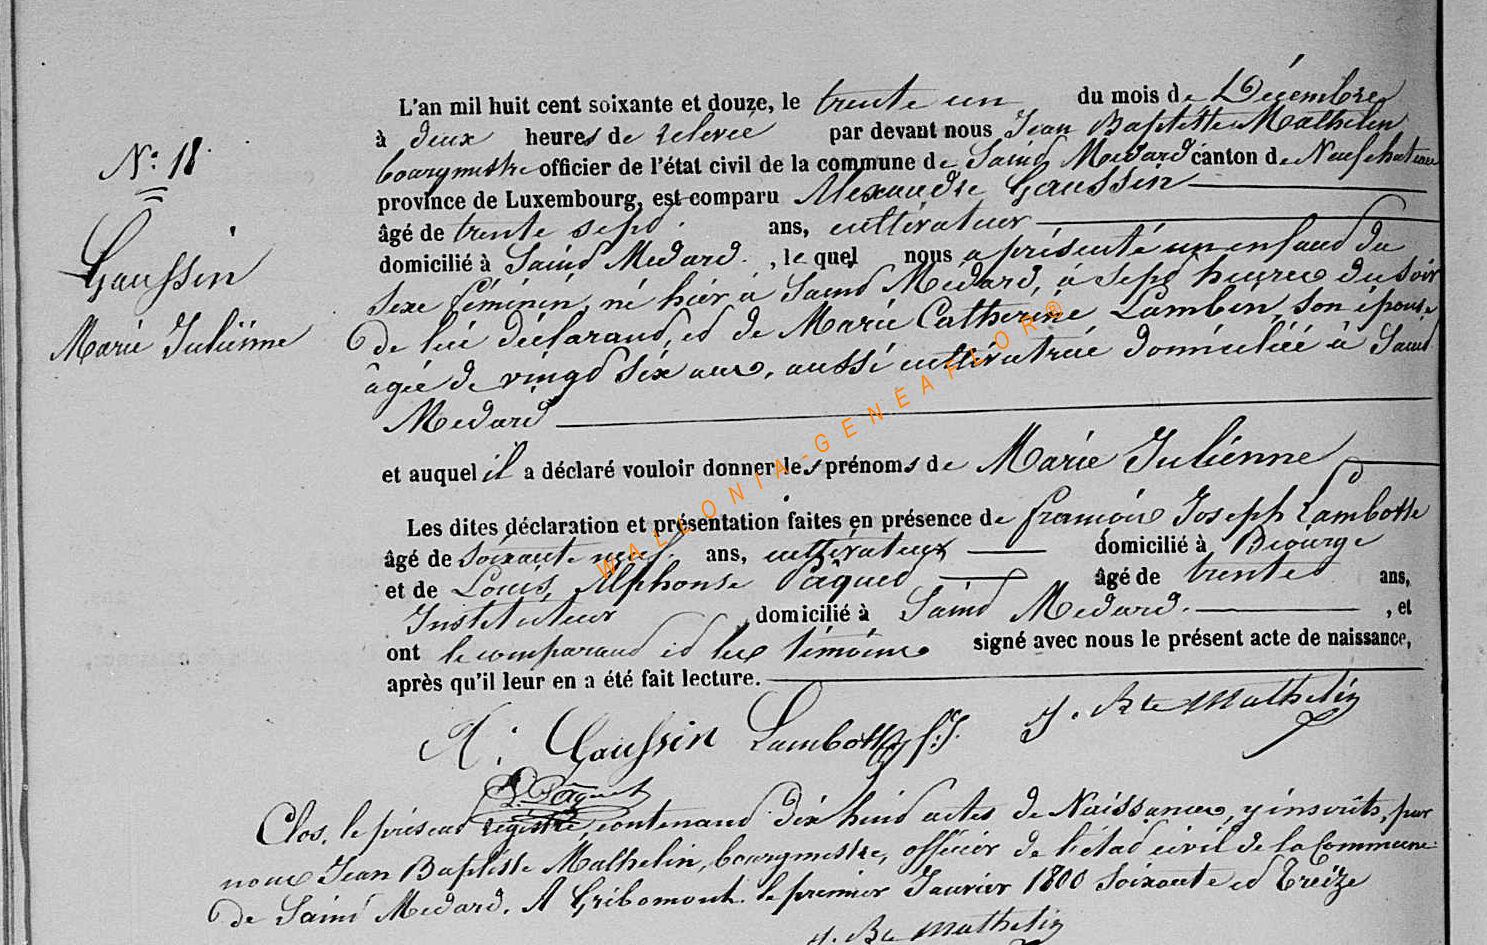 N° 18
Gaussin
Marie Julienne
L'an mil huit cent soixante et douze, le trente un du mois de Décembre
à deux heures de relevée par devant nous Jean Baptiste Mathelin
bourgmestre officier de l'état civil de la commune de Saint Medard canton de Neufchateau
province de Luxembourg, est comparu Alexandre Gaussin
âgé de trente sept ans, cultivateur
domicilié à Saint Medard, le quel nous a présenté un enfant du
sexe féminin, né hier à Saint Médard, à sept heures du soir
de lui déclarant, et de Marie Catherine Lambin, son épouse
âgée de vingt six ans, aussi cultivatrice domiciliée à Saint
Medard
et auquel il a déclaré vouloir donner les prénoms de Marie Julienne
Les dites déclaration et présentation faites en présence de françois Joseph Lambotte
âgé de soixante neuf ans, cultivateur domicilié à Biourge
et de Louis, Alphonse Pâquet âgé de trente ans,
Instituteur domicilié à Saint Medard. , et
ont le comparant et les témoins signé avec nous le présent acte de naissance,
après qu'il leur en a été fait lecture.
A. Gaussin Lambotte f. J. J. Bte Mathelin
L. Pâquet
Clos, le présent registre contenant dix huit actes de Naissances, y inscrits, par
nous Jean Baptiste Mathelin, bourgmestre, officier de l'état civil de la Commune
de Saint Medard. A Gribomont le premier Janvier 1800 soixante et treize
J. Bte Mathelin
WALLONIA-GENEAFLOR®